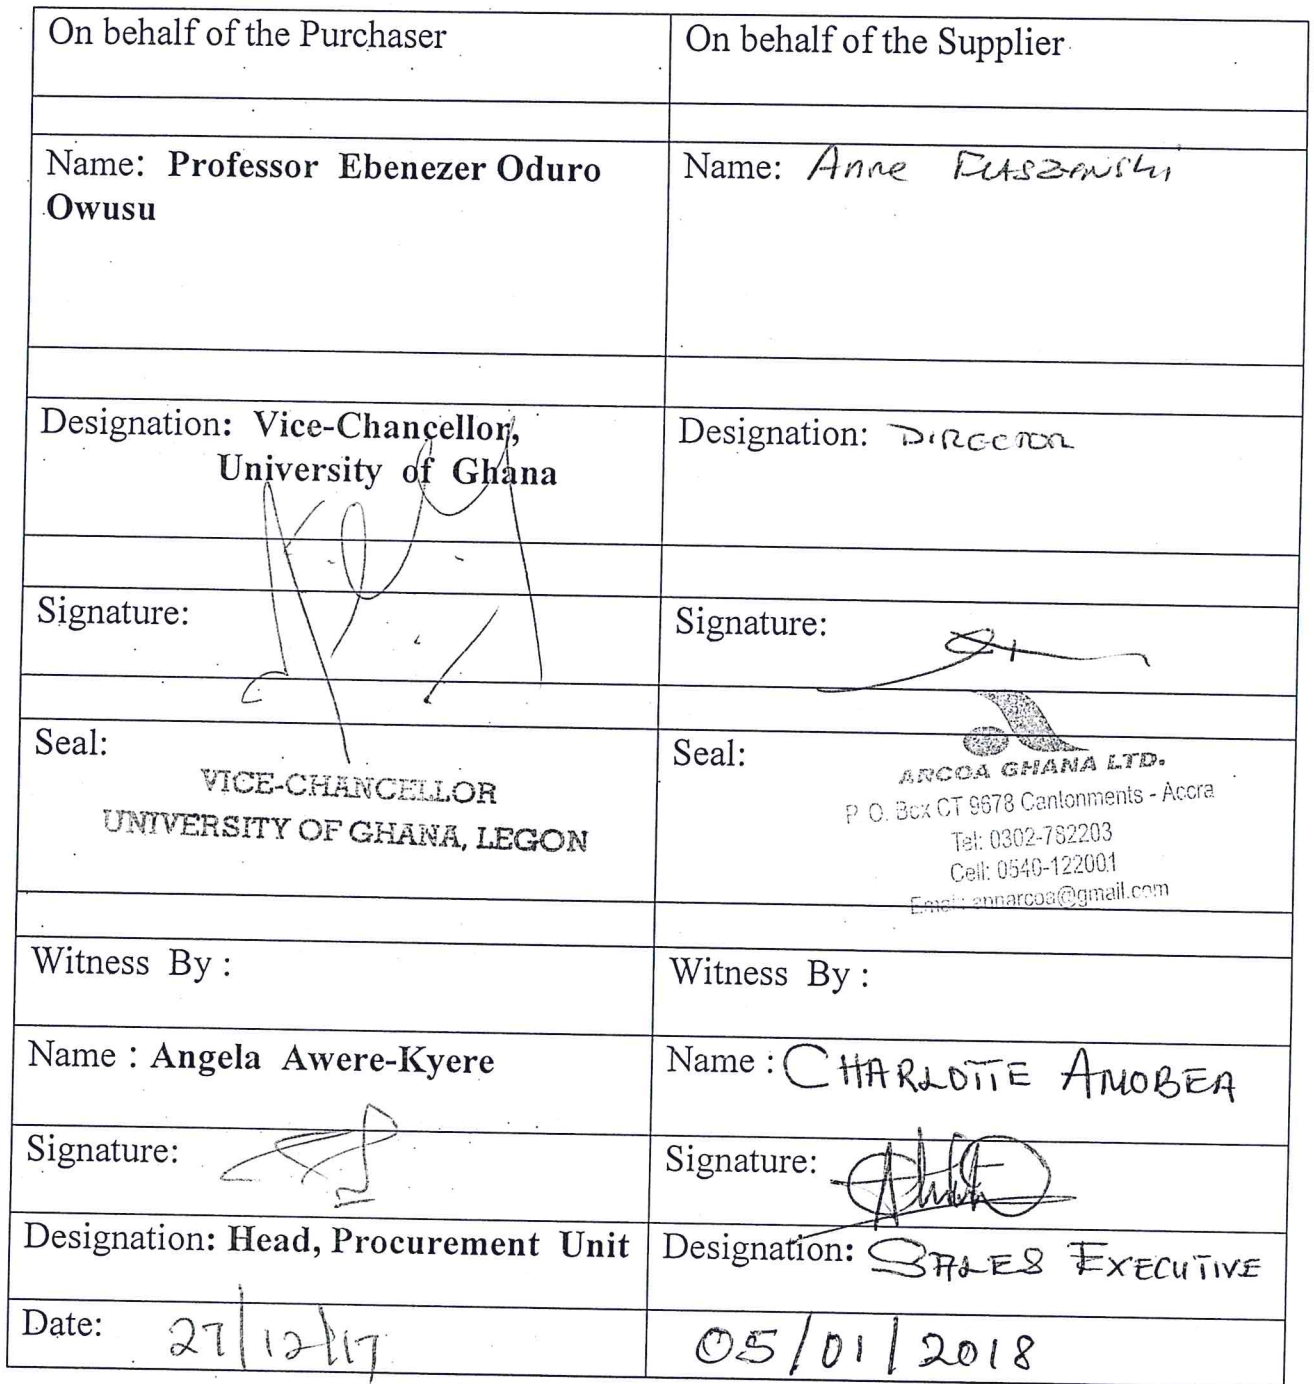 On behalf of the Purchaser
On behalf of the Supplier
Name: Professor Ebenezer Oduro
Owusu
Name: Anne
Designation: Vice-Chancellor,
University of Ghana
Designation: DIRECTOR
Signature:
Signature:
Seal:
VICE-CHANCELLOR
UNIVERSITY OF GHANA, LEGON
Seal:
ARCOA GHANA LTD.
P. O. Box CT 9678 Cantonments - Accra
Tel: 0302-782203
Cell: 0540-122001
Email: annarcoa@gmail.com
Witness By :
Witness By :
Name : Angela Awere-Kyere
Name : CHARLOTTE AMOBEA
Signature:
Signature:
Designation: Head, Procurement Unit
Designation: SALES EXECUTIVE
Date: 27/12/17
05/01/2018